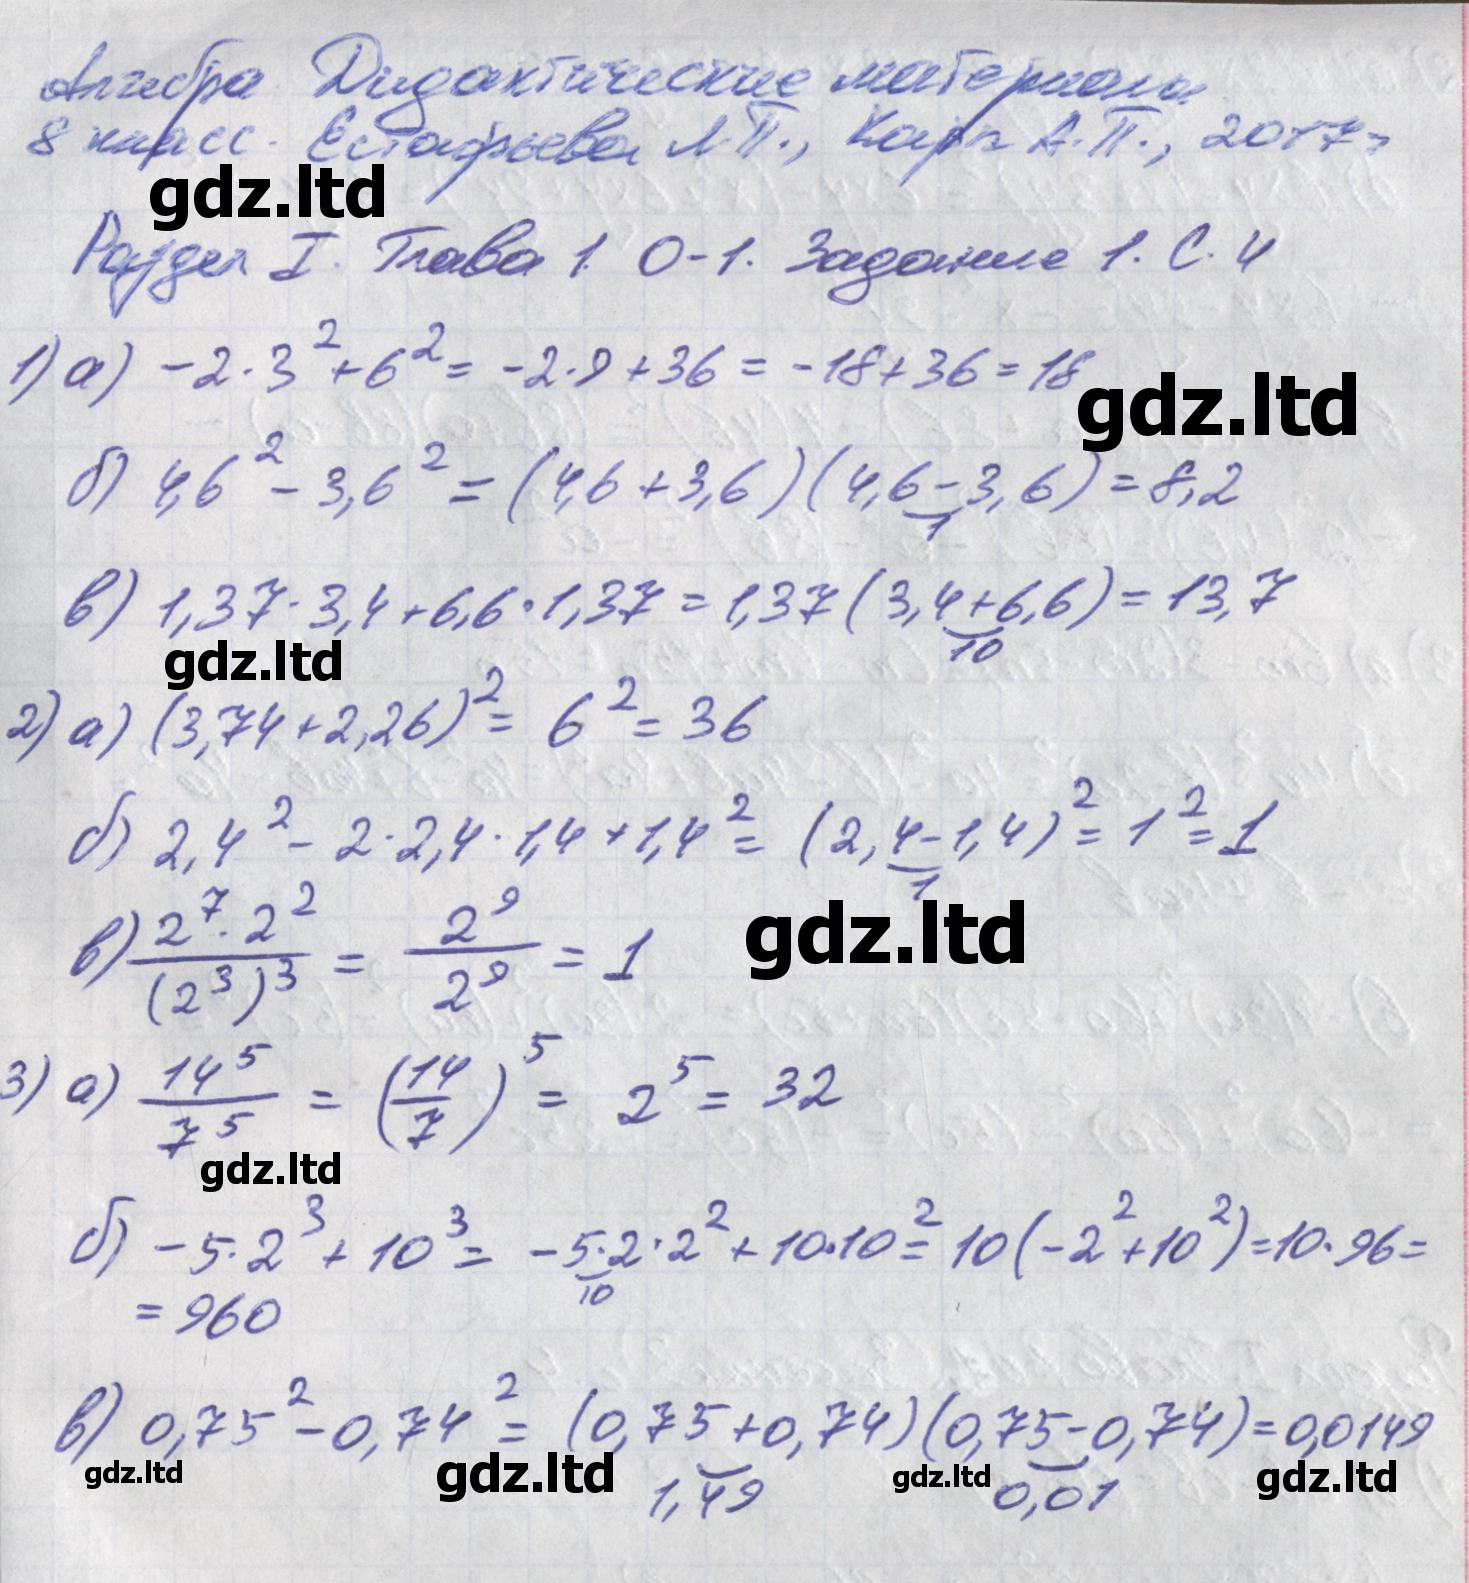 Алгебра Дидактические материалы
8 класс. Естафьева Л.П., Карп А.П., 2017г.
gdz.ltd
Раздел I. Глава 1. О-1. Задание 1. С. 4
1) а) -2·3²+6² = -2·9+36 = -18+36 = 18
gdz.ltd
б) 4,6² - 3,6² = (4,6+3,6)(4,6-3,6) = 8,2
1
в) 1,37·3,4+6,6·1,37 = 1,37(3,4+6,6) = 13,7
10
gdz.ltd
2) а) (3,74+2,26)² = 6² = 36
б) 2,4² - 2·2,4·1,4+1,4² = (2,4-1,4)² = 1² = 1
1
в) (2⁷·2²)/((2³)³) = 2⁹/2⁹ = 1
gdz.ltd
3) а) 14⁵/7⁵ = (14/7)⁵ = 2⁵ = 32
gdz.ltd
б) -5·2³+10³ = -5·2·2²+10·10² = 10(-2²+10²) = 10·96 =
10
= 960
в) 0,75²-0,74² = (0,75+0,74)(0,75-0,74) = 0,0149
gdz.ltd gdz.ltd gdz.ltd gdz.ltd
1,49 0,01